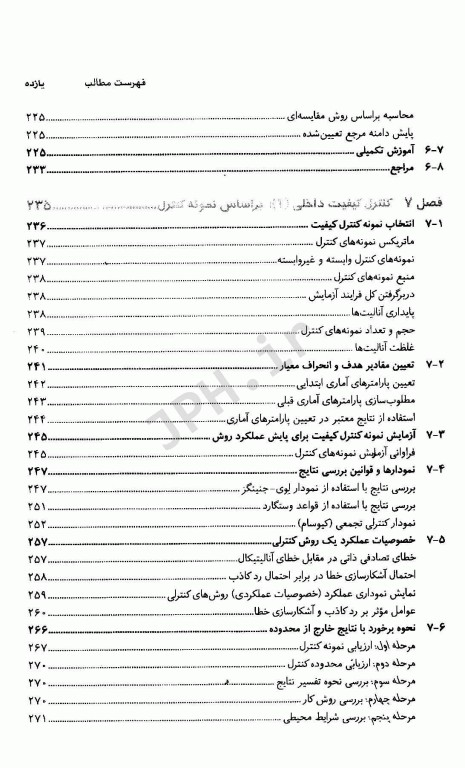 فهرست مطالب یازده
محاسبه براساس روش مقایسه‌ای ۲۲۵
پایش دامنه مرجع تعیین‌شده ۲۲۵
۶-۷ آموزش تکمیلی ۲۲۵
۶-۸ مراجع ۲۳۳
فصل ۷ کنترل کیفیت داخلی (۲): براساس نمونه کنترل ۲۳۵
۷-۱ انتخاب نمونه کنترل کیفیت ۲۳۶
ماتریکس نمونه‌های کنترل ۲۳۷
نمونه‌های کنترل وابسته و غیروابسته ۲۳۷
منبع نمونه‌های کنترل ۲۳۸
دربرگرفتن کل فرایند آزمایش ۲۳۸
پایداری آنالیت‌ها ۲۳۸
حجم و تعداد نمونه‌های کنترل ۲۳۹
غلظت آنالیت‌ها ۲۴۰
۷-۲ تعیین مقادیر هدف و انحراف معیار ۲۴۱
تعیین پارامترهای آماری ابتدایی ۲۴۲
مطلوب‌سازی پارامترهای آماری قبلی ۲۴۳
استفاده از نتایج معتبر در تعیین پارامترهای آماری ۲۴۴
۷-۳ آزمایش نمونه کنترل کیفیت برای پایش عملکرد روش ۲۴۵
فراوانی آزمایش نمونه‌های کنترل ۲۴۵
۷-۴ نمودارها و قوانین بررسی نتایج ۲۴۷
بررسی نتایج با استفاده از نمودار لوی-جنینگز ۲۴۷
بررسی نتایج با استفاده از قواعد وستگارد ۲۵۱
نمودار کنترلی تجمعی (کیوسام) ۲۵۲
۷-۵ خصوصیات عملکرد یک روش کنترلی ۲۵۷
خطای تصادفی ذاتی در مقابل خطای آنالیتیکال ۲۵۷
احتمال آشکارسازی خطا در برابر احتمال رد کاذب ۲۵۸
نمایش نموداری عملکرد (خصوصیات عملکردی) روش‌های کنترلی ۲۵۹
عوامل مؤثر بر رد کاذب و آشکارسازی خطا ۲۶۰
۷-۶ نحوه برخورد با نتایج خارج از محدوده ۲۶۶
مرحله اول: ارزیابی نمونه کنترل ۲۶۷
مرحله دوم: ارزیابی محدوده کنترل ۲۷۰
مرحله سوم: بررسی نحوه تفسیر نتایج ۲۷۰
مرحله چهارم: بررسی روش کار ۲۷۰
مرحله پنجم: بررسی شرایط محیطی ۲۷۱
JPH.ir